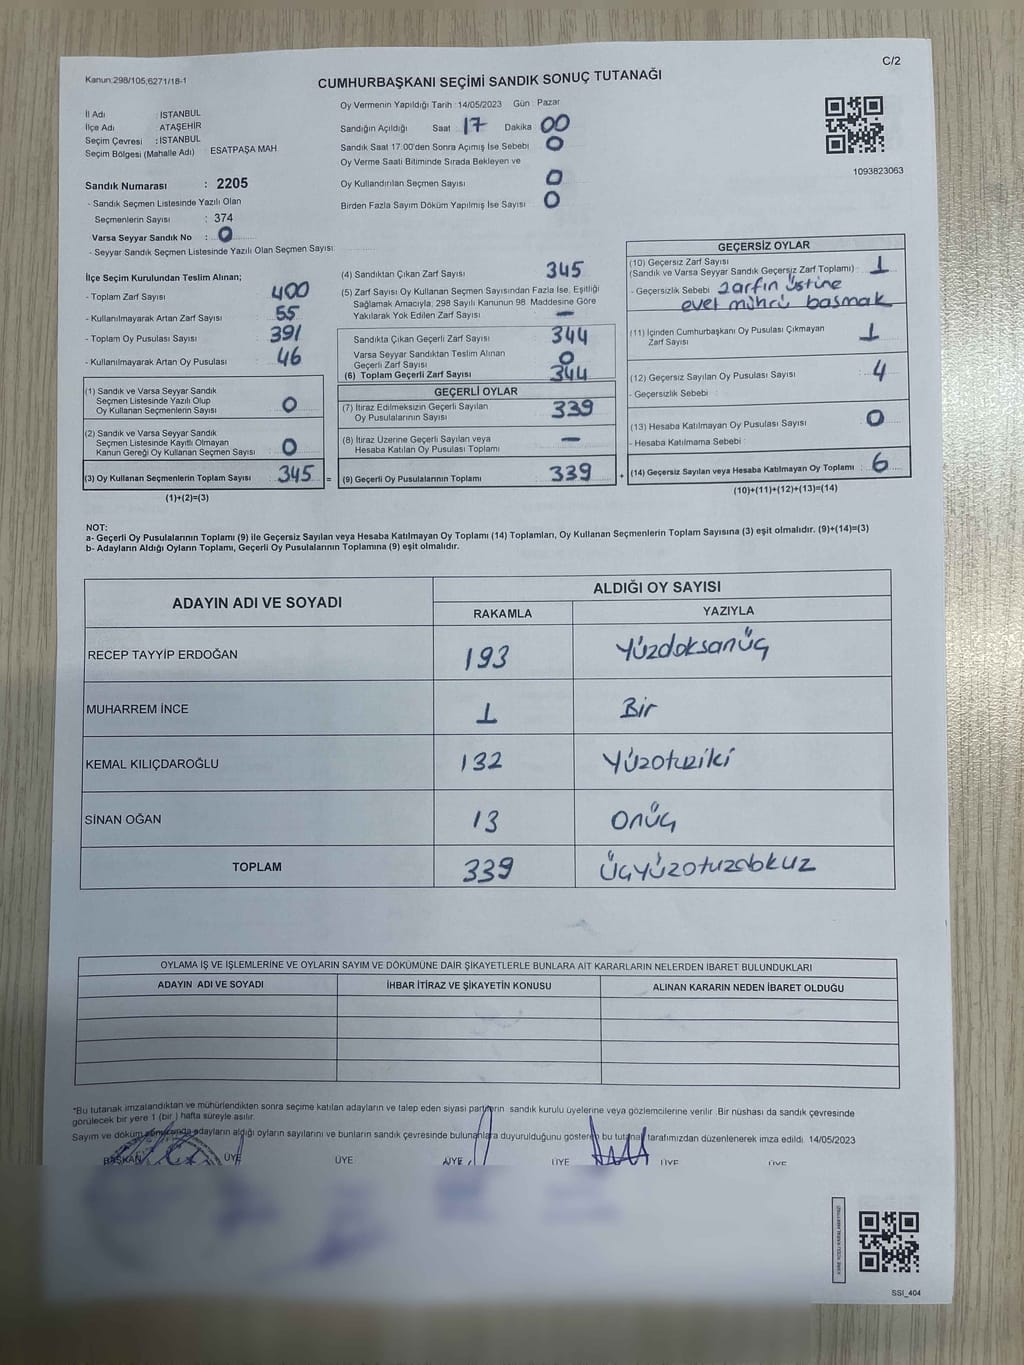 Kanun:298/105,6271/18-1
C/2
CUMHURBAŞKANI SEÇİMİ SANDIK SONUÇ TUTANAĞI
İl Adı : İSTANBUL
İlçe Adı ATAŞEHİR
Seçim Çevresi : İSTANBUL
Seçim Bölgesi (Mahalle Adı) ESATPAŞA MAH.
Sandık Numarası : 2205
- Sandık Seçmen Listesinde Yazılı Olan
Seçmenlerin Sayısı : 374
Varsa Seyyar Sandık No : 0
- Seyyar Sandık Seçmen Listesinde Yazılı Olan Seçmen Sayısı
Oy Vermenin Yapıldığı Tarih :14/05/2023 Gün : Pazar
Sandığın Açıldığı Saat 17 Dakika 00
Sandık Saat 17:00'den Sonra Açımış İse Sebebi 0
Oy Verme Saati Bitiminde Sırada Bekleyen ve
Oy Kullandırılan Seçmen Sayısı 0
Birden Fazla Sayım Döküm Yapılmış İse Sayısı 0
1093823063
İlçe Seçim Kurulundan Teslim Alınan;
- Toplam Zarf Sayısı 400
- Kullanılmayarak Artan Zarf Sayısı 55
- Toplam Oy Pusulası Sayısı 391
- Kullanılmayarak Artan Oy Pusulası 46
(1) Sandık ve Varsa Seyyar Sandık
Seçmen Listesinde Yazılı Olup
Oy Kullanan Seçmenlerin Sayısı 0
(2) Sandık ve Varsa Seyyar Sandık
Seçmen Listesinde Kayıtlı Olmayan
Kanun Gereği Oy Kullanan Seçmen Sayısı 0
(3) Oy Kullanan Seçmenlerin Toplam Sayısı 345 =
(1)+(2)=(3)
(4) Sandıktan Çıkan Zarf Sayısı 345
(5) Zarf Sayısı Oy Kullanan Seçmen Sayısından Fazla İse, Eşitliği
Sağlamak Amacıyla, 298 Sayılı Kanunun 98. Maddesine Göre
Yakılarak Yok Edilen Zarf Sayısı —
Sandıkta Çıkan Geçerli Zarf Sayısı 344
Varsa Seyyar Sandıktan Teslim Alınan
Geçerli Zarf Sayısı 0
(6) Toplam Geçerli Zarf Sayısı 344
GEÇERLİ OYLAR
(7) İtiraz Edilmeksizin Geçerli Sayılan
Oy Pusulalarının Sayısı 339
(8) İtiraz Üzerine Geçerli Sayılan veya
Hesaba Katılan Oy Pusulası Toplamı —
(9) Geçerli Oy Pusulalarının Toplamı 339 +
GEÇERSİZ OYLAR
(10) Geçersiz Zarf Sayısı
(Sandık ve Varsa Seyyar Sandık Geçersiz Zarf Toplamı) 1
- Geçersizlik Sebebi zarfın üstüne
evet mührü basmak
(11) İçinden Cumhurbaşkanı Oy Pusulası Çıkmayan
Zarf Sayısı 1
(12) Geçersiz Sayılan Oy Pusulası Sayısı 4
- Geçersizlik Sebebi
(13) Hesaba Katılmayan Oy Pusulası Sayısı 0
- Hesaba Katılmama Sebebi
(14) Geçersiz Sayılan veya Hesaba Katılmayan Oy Toplamı 6
(10)+(11)+(12)+(13)=(14)
NOT:
a- Geçerli Oy Pusulalarının Toplamı (9) ile Geçersiz Sayılan veya Hesaba Katılmayan Oy Toplamı (14) Toplamları, Oy Kullanan Seçmenlerin Toplam Sayısına (3) eşit olmalıdır. (9)+(14)=(3)
b- Adayların Aldığı Oyların Toplamı, Geçerli Oy Pusulalarının Toplamına (9) eşit olmalıdır.
ADAYIN ADI VE SOYADI ALDIĞI OY SAYISI
RAKAMLA YAZIYLA
RECEP TAYYİP ERDOĞAN 193 Yüzdoksanüç
MUHARREM İNCE 1 Bir
KEMAL KILIÇDAROĞLU 132 Yüzotuziki
SİNAN OĞAN 13 Onüç
TOPLAM 339 Üçyüzotuzdokuz
OYLAMA İŞ VE İŞLEMLERİNE VE OYLARIN SAYIM VE DÖKÜMÜNE DAİR ŞİKAYETLERLE BUNLARA AİT KARARLARIN NELERDEN İBARET BULUNDUKLARI
ADAYIN ADI VE SOYADI İHBAR İTİRAZ VE ŞİKAYETİN KONUSU ALINAN KARARIN NEDEN İBARET OLDUĞU
*Bu tutanak imzalandıktan ve mühürlendikten sonra seçime katılan adayların ve talep eden siyasi partilerin sandık kurulu üyelerine veya gözlemcilerine verilir. Bir nüshası da sandık çevresinde
görülecek bir yere 1 (bir ) hafta süreyle asılır.
Sayım ve döküm sonucunda adayların aldığı oyların sayılarını ve bunların sandık çevresinde bulunanlara duyurulduğunu gösteren bu tutanak tarafımızdan düzenlenerek imza edildi. 14/05/2023
BAŞKAN ÜYE ÜYE ÜYE ÜYE ÜYE ÜYE
SSI_404